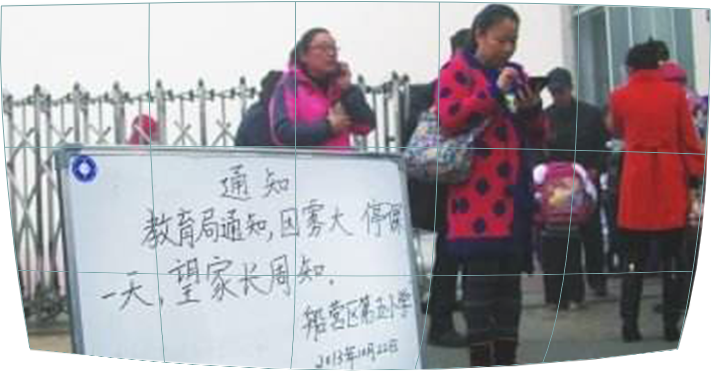 通知
教育局通知,因雾大 停课
一天,望家长周知.
船营区第五小学
2013年10月22日